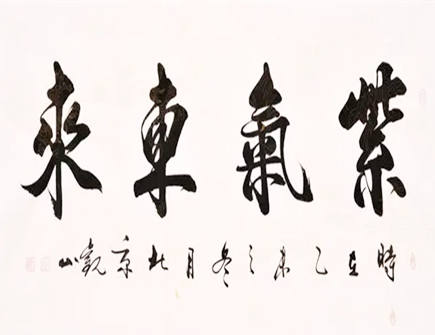 紫氣東來
時在乙未之冬月北京觀山